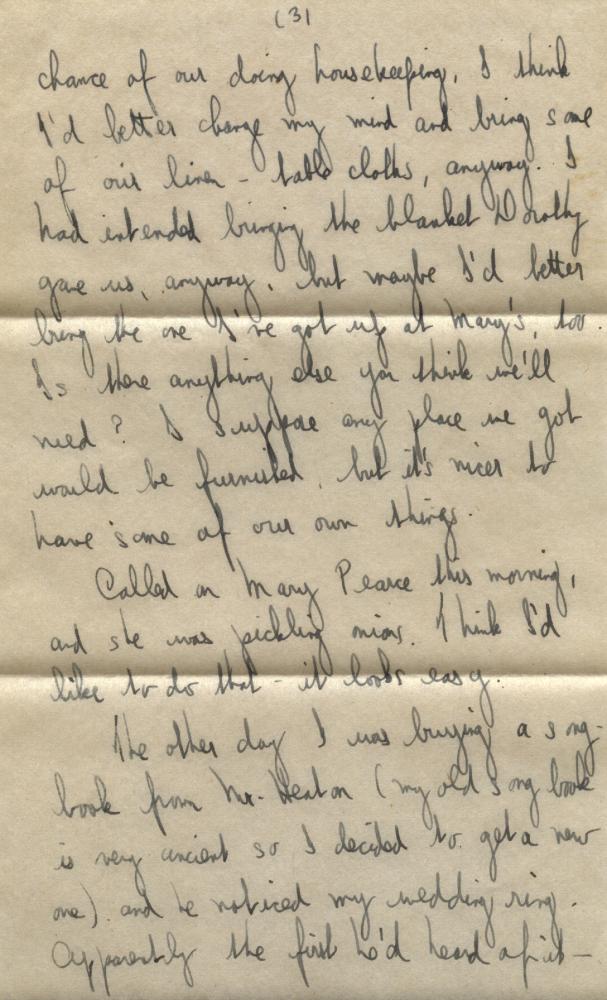 (3)
chance of our doing housekeeping, I think
I'd better change my mind and bring some
of our linen - table cloths, anyway. I
had intended bringing the blanket Dorothy
gave us, anyway, but maybe I'd better
bring the one I've got up at Mary's, too.
Is there anything else you think we'll
need? I suppose any place we got
would be furnished, but it's nicer to
have some of our own things.
Called on Mary Pearce this morning,
and she was pickling onions. Think I'd
like to do that - it looks easy.
The other day I was buying a song-
book from Mr. Heaton (my old song book
is very ancient so I decided to get a new
one) and he noticed my wedding ring.
Apparently the first he'd heard of it -